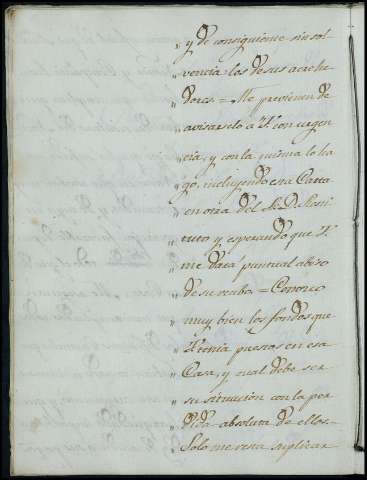 " y de consiguiente sin sol-
" vencia los de sus acrehe
" dores = Me previenen de
" avisarselo a V. con urgen
" cia, y con la misma lo ha
" go, incluyendo esta Carta
" en otra del Sr. D.
" y esperando que V.
" me dará puntual abiso
" de su recibo = Conozco
" muy bien los fondos que
" V. tenia puestos en esa
" Casa, y cual debe ser
" su situacion con la per
" dida absoluta de ellos.
" Solo me resta suplicar